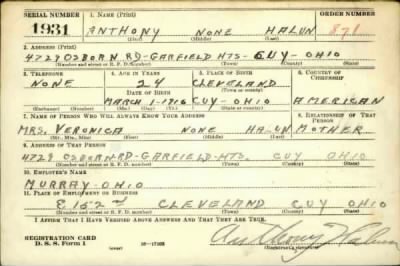 SERIAL NUMBER 1. NAME (Print) ORDER NUMBER
1931 ANTHONY NONE HALUN 871
(First) (Middle) (Last)
2. ADDRESS (Print)
4729 OSBORN RD-GARFIELD HTS- CUY - OHIO
(Number and street or R. F. D. number) (Town) (County) (State)
3. TELEPHONE 4. AGE IN YEARS 5. PLACE OF BIRTH 6. COUNTRY OF CITIZENSHIP
NONE 24 CLEVELAND
DATE OF BIRTH (Town or county)
MARCH 1-1916 CUY - OHIO AMERICAN
(Exchange) (Number) (Mo.) (Day) (Yr.) (State or country)
7. NAME OF PERSON WHO WILL ALWAYS KNOW YOUR ADDRESS 8. RELATIONSHIP OF THAT PERSON
MRS. VERONICA NONE HALUN MOTHER
(Mr., Mrs., Miss) (First) (Middle) (Last)
9. ADDRESS OF THAT PERSON
4729 OSBORN RD-GARFIELD-HTS. CUY OHIO
(Number and street or R. F. D. number) (Town) (County) (State)
10. EMPLOYER'S NAME
MURRAY-OHIO
11. PLACE OF EMPLOYMENT OR BUSINESS
E 152nd CLEVELAND CUY OHIO
(Number and street or R. F. D. number) (Town) (County) (State)
I AFFIRM THAT I HAVE VERIFIED ABOVE ANSWERS AND THAT THEY ARE TRUE.
REGISTRATION CARD
D. S. S. Form 1 Anthony Halun
(Registrant's signature)